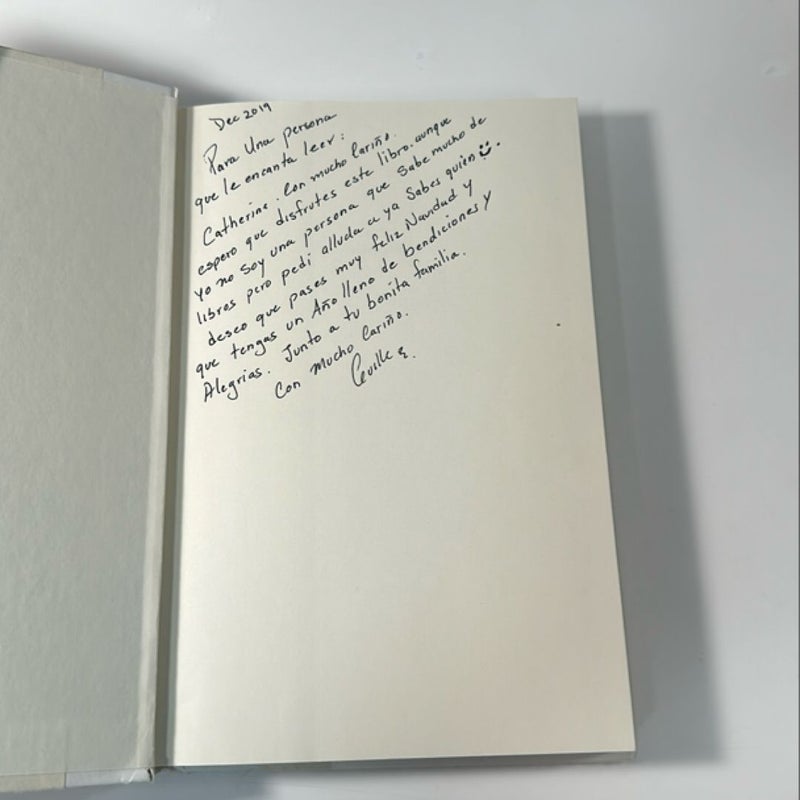 Dec 2019
Para Una persona
que le encanta leer:
Catherine. Con mucho Cariño.
espero que disfrutes este libro. aunque
yo no soy una persona que Sabe mucho de
libros pero pedi alluda a ya Sabes quien
deseo que pases muy feliz Navidad y
que tengas un Año lleno de bendiciones y
Alegrias. Junto a tu bonita familia.
Con mucho Cariño.